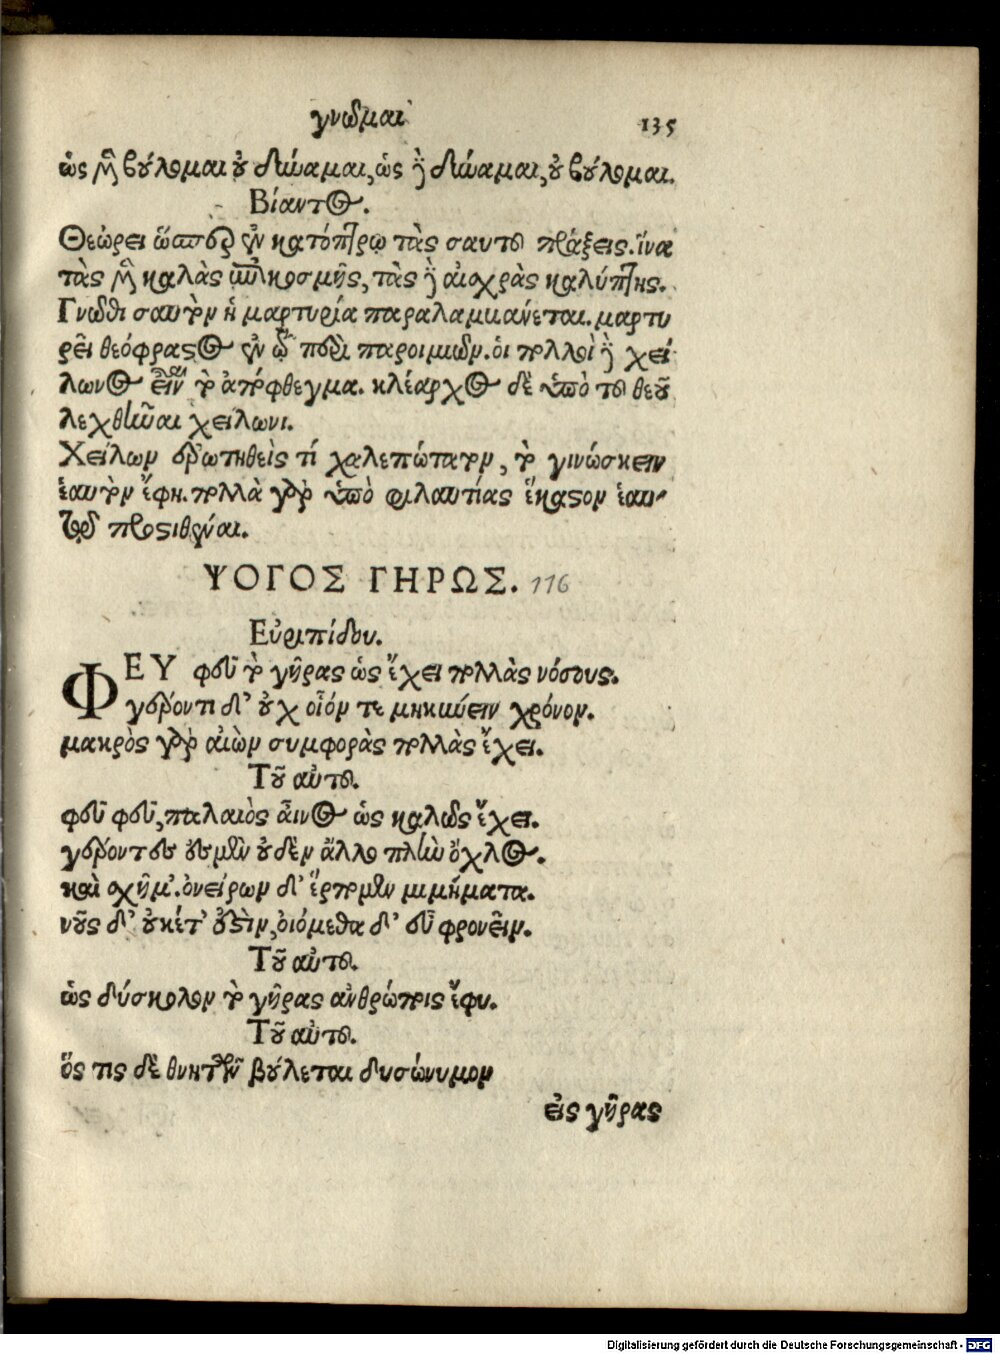 γνῶμαι 135
ὡς μὲν βούλομαι οὐ δύναμαι, ὡς δὲ δύναμαι, οὐ βούλομαι.
Βίαντος.
Θεώρει ὥσπερ ἐν κατόπτρῳ τὰς σαυτοῦ πράξεις. ἵνα
τὰς μὲν καλὰς ἐπικοσμῇς, τὰς δὲ αἰσχρὰς καλύπτης.
Γνῶθι σαυτὸν ἡ μαρτυρία παραλαμβάνεται. μαρτυ
ρεῖ θεόφραστος ἐν τῷ περὶ παροιμιῶν. οἱ πολλοὶ δὲ χεί
λωνος εἶναι τὸ ἀπόφθεγμα. κλέαρχος δὲ ὑπὸ τοῦ θεοῦ
λεχθῆναι χείλωνι.
Χείλων ἐρωτηθεὶς τί χαλεπώτατον, τὸ γινώσκειν
ἑαυτὸν ἔφη. πολλὰ γὰρ ὑπὸ φιλαυτίας ἕκαστον ἑαυ-
τῷ προστιθέναι.
ΨΟΓΟΣ ΓΗΡΩΣ. 116
Εὐριπίδου.
ΦΕΥ φεῦ τὸ γῆρας ὡς ἔχει πολλὰς νόσους.
γέροντι δ' οὐχ οἷόν τε μηκύειν χρόνον.
μακρὸς γὰρ αἰὼν συμφορὰς πολλὰς ἔχει.
Τοῦ αὐτοῦ.
φεῦ φεῦ, παλαιὸς αἶνος ὡς καλῶς ἔχει.
γέροντες ἐσμὲν οὐδὲν ἄλλο πλὴν ὄχλος.
καὶ σχῆμ'. ὀνείρων δ' ἕρπομεν μιμήματα.
νοῦς δ' οὐκέτ' ἔστιν, οἰόμεθα δ' εὖ φρονεῖν.
Τοῦ αὐτοῦ.
ὡς δύσκολον τὸ γῆρας ἀνθρώποις ἔφυ.
Τοῦ αὐτοῦ.
ὅς τις δὲ θνητῶν βούλεται δυσώνυμον
εἰς γῆρας
Digitalisierung gefördert durch die Deutsche Forschungsgemeinschaft - DFG